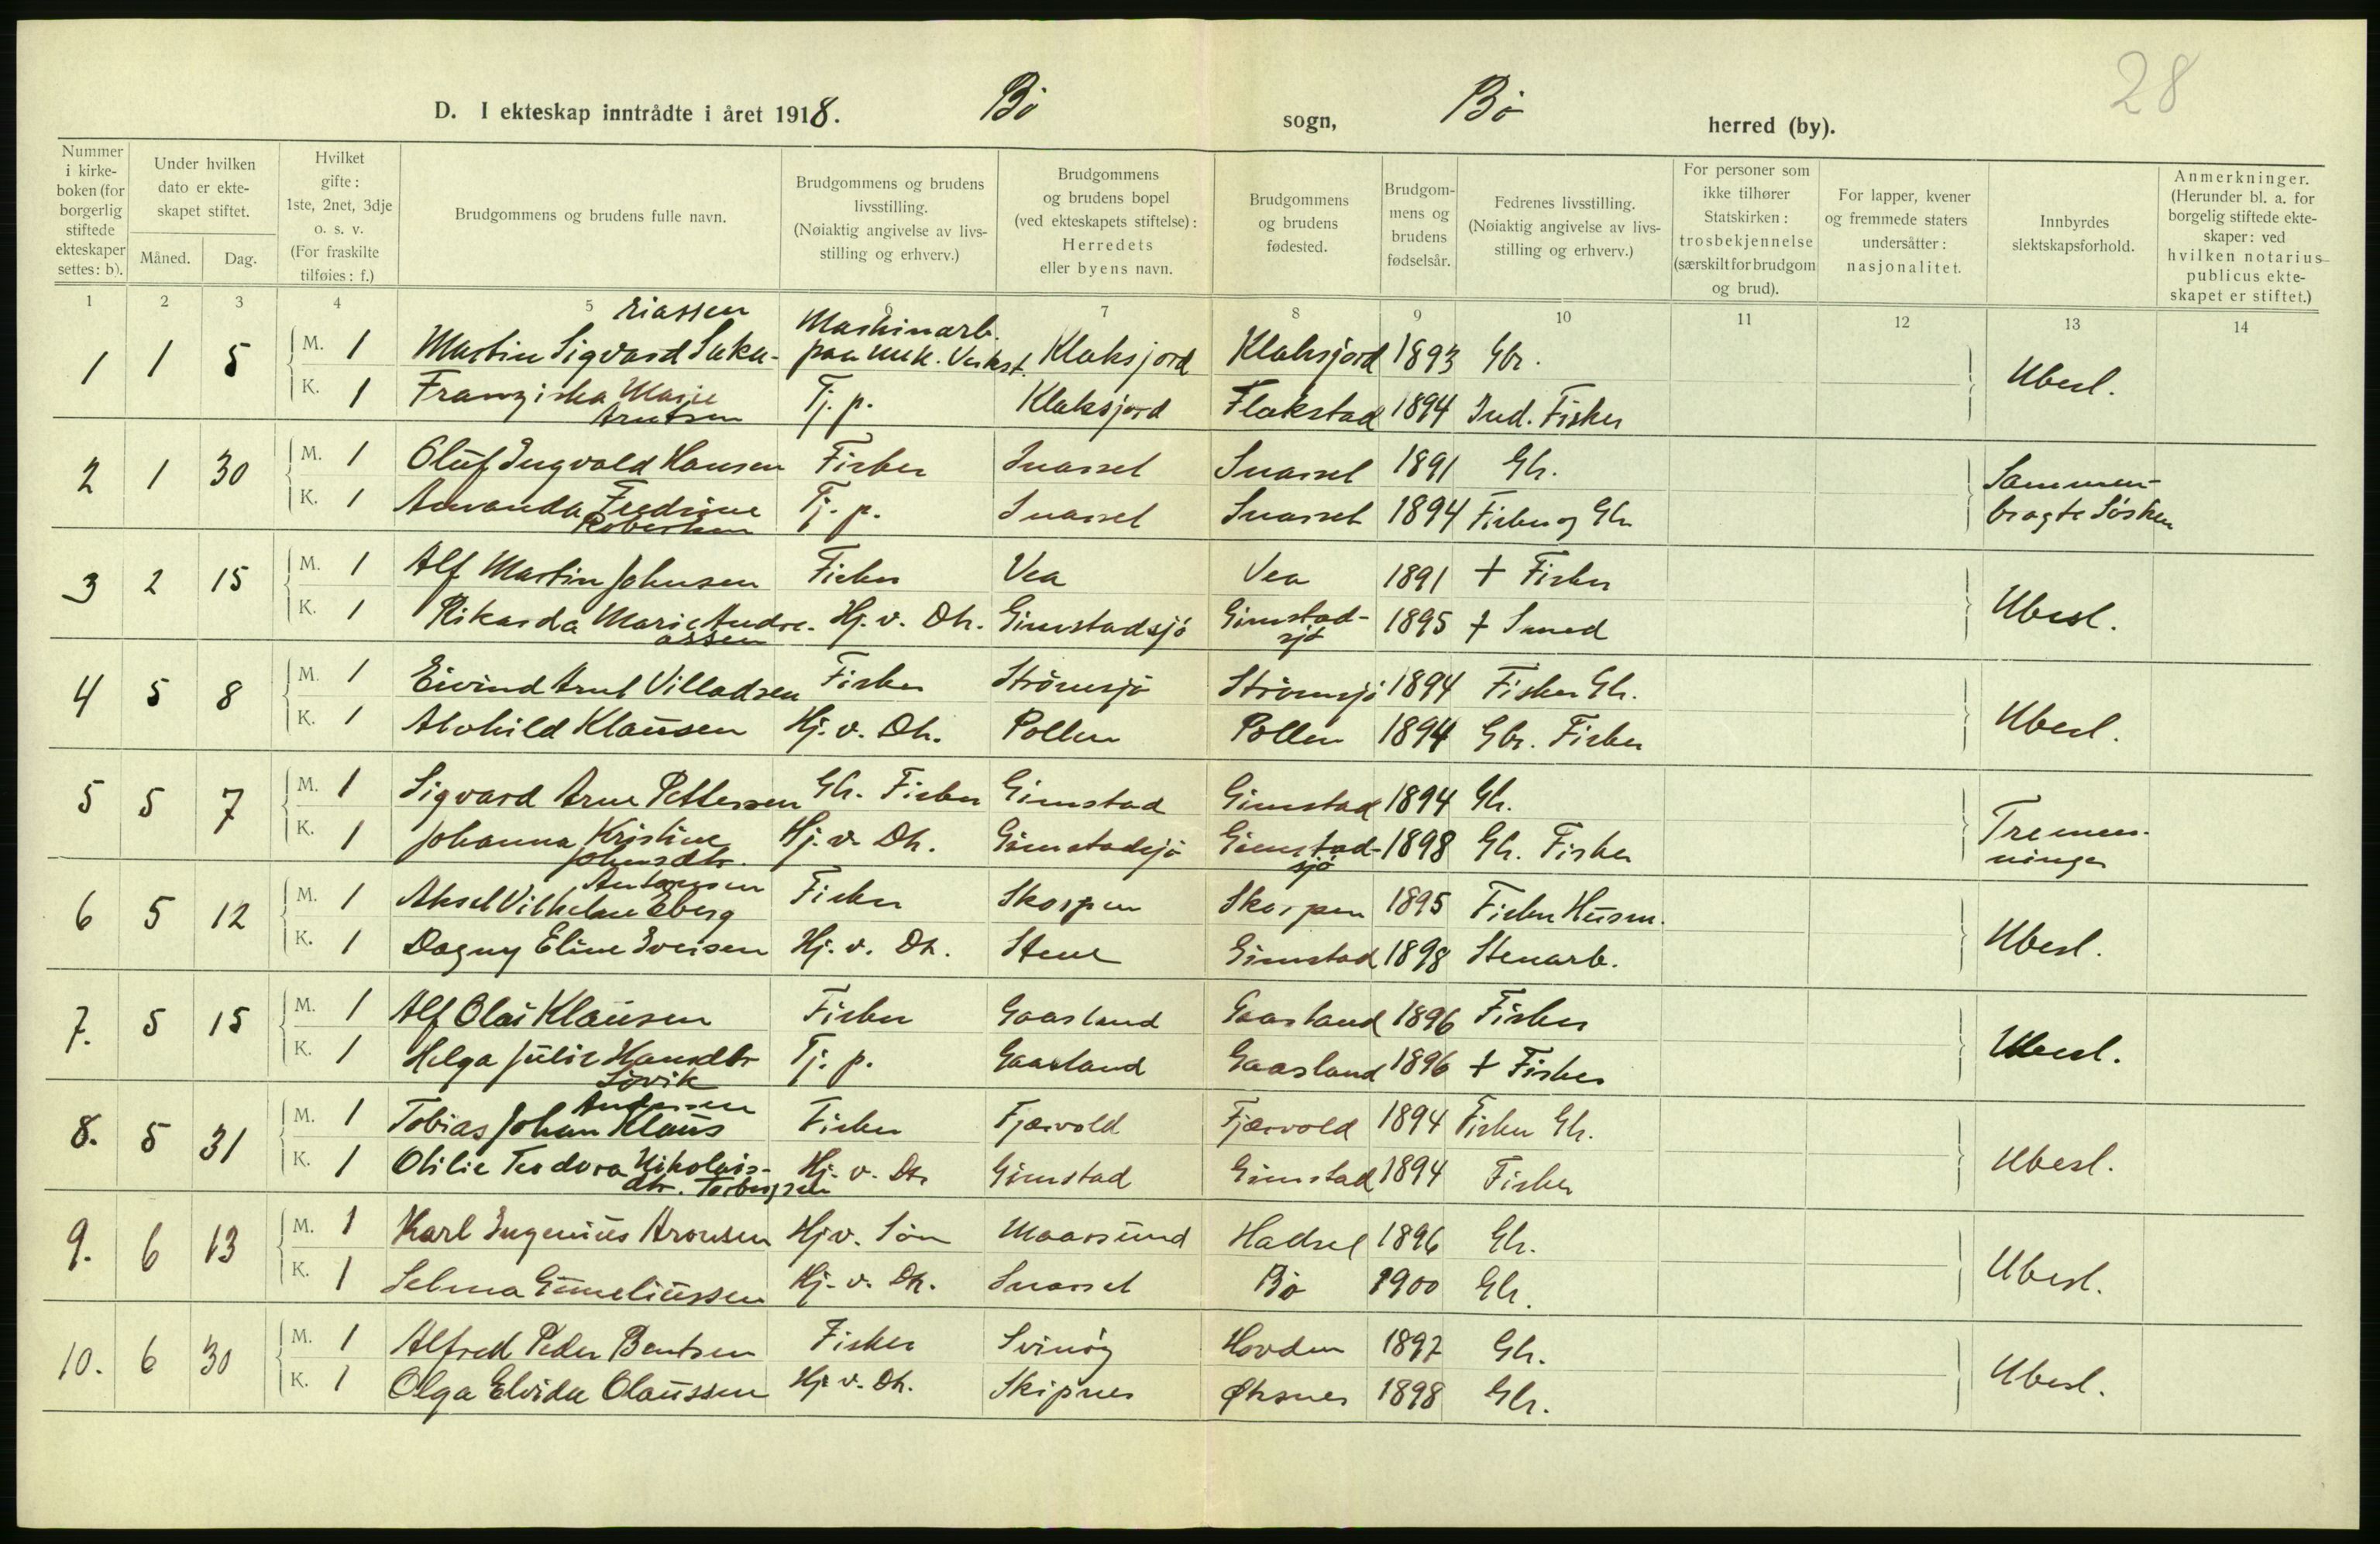 28
D. I ekteskap inntrådte i året 1918. Bø sogn, Bø herred (by).
Nummer i kirkeboken (for borgerlig stiftede ekteskaper settes: b).
Under hvilken dato er ekteskapet stiftet.
Måned. Dag.
Hvilket gifte: 1ste, 2net, 3dje o. s. v. (For fraskilte tilføies: f.)
Brudgommens og brudens fulle navn.
Brudgommens og brudens livsstilling. (Nøiaktig angivelse av livsstilling og erhverv.)
Brudgommens og brudens bopel (ved ekteskapets stiftelse): Herredets eller byens navn.
Brudgommens og brudens fødested.
Brudgommens og brudens fødselsår.
Fedrenes livsstilling. (Nøiaktig angivelse av livsstilling og erhverv.)
For personer som ikke tilhører Statskirken: trosbekjennelse (særskilt for brudgom og brud).
For lapper, kvener og fremmede staters undersåtter: nasjonalitet.
Innbyrdes slektskapsforhold.
Anmerkninger. (Herunder bl. a. for borgelig stiftede ekteskaper: ved hvilken notarius publicus ekteskapet er stiftet.)
1 2 3 4 5 6 7 8 9 10 11 12 13 14
1 1 5 M. 1 Martin Sigvard Sakariassen Maskinarb. paa mek. Verkst. Klaksjord Klaksjord 1893 Gbr. Ubesl.
K. 1 Franziska Marie Arntsen Tj. p. Klaksjord Flakstad 1894 Ind. Fisker
2 1 30 M. 1 Oluf Ingvald Hansen Fisker Snarset Snarset 1891 Gb. Sammenbragte Søsken
K. 1 Amanda Fredrine Robertsen Tj. p. Snarset Snarset 1894 Fisker og Gb
3 2 15 M. 1 Alf Martin Johnsen Fisker Vea Vea 1891 + Fisker Ubesl.
K. 1 Rikarda Marie Andreassen Hj. v. Dh. Gimstadsjö Gimstadsjö 1895 + Smed
4 5 8 M. 1 Eivind Arnt Villadsen Fisker Strömsjö Strömsjö 1894 Fisker Gb. Ubesl.
K. 1 Alvhild Klaŭsen Hj. v. Dh. Pollen Pollen 1894 Gbr. Fisker
5 5 7 M. 1 Sigvard Arne Pettersen Gb. Fisker Gimstad Gimstad 1894 Gb. Tremenninger
K. 1 Johanna Kristine Johnsdtr. Hj. v. Dh. Gimstadsjö Gimstadsjö 1898 Gb. Fisker
6 5 12 M. 1 Aksel Vilhelm Eberg Antonsen Fisker Skorpen Skorpen 1895 Fisker Hŭsm. Ubesl.
K. 1 Dagny Eline Iversen Hj. v. Dh. Stene Gimstad 1898 Stenarb.
7. 5 15 M. 1 Alf Olai Klaŭsen Fisker Gaasland Gaasland 1896 Fisker Ubesl.
K. 1 Helga Jŭlie Hansdtr Sövik Tj. p. Gaasland Gaasland 1896 + Fisker
8. 5 31 M. 1 Tobias Johan Klaŭs Fisker Fjærvold Fjærvold 1894 Fisker Gb. Ubesl.
K. 1 Otilie Teodora Nikolaisdtr. Torbergsen Hj. v. Dh Gimstad Gimstad 1894 Fisker
9. 6 13 M. 1 Karl Ingeniŭs Aronsen Hj v. Søn Maarsŭnd Hadsel 1896 Gb. Ubesl.
K. 1 Selma Eŭmeliŭssen Hj. v. Dh. Snarset Bø 1900 Gb.
10. 6 30 M. 1 Alfred Peder Bentsen Fisker Svinöy Hovden 1897 Gb. Ubesl.
K. 1 Olga Elvida Olaŭssen Hj. v. Dh. Skipnes Øksnes 1898 Gb.